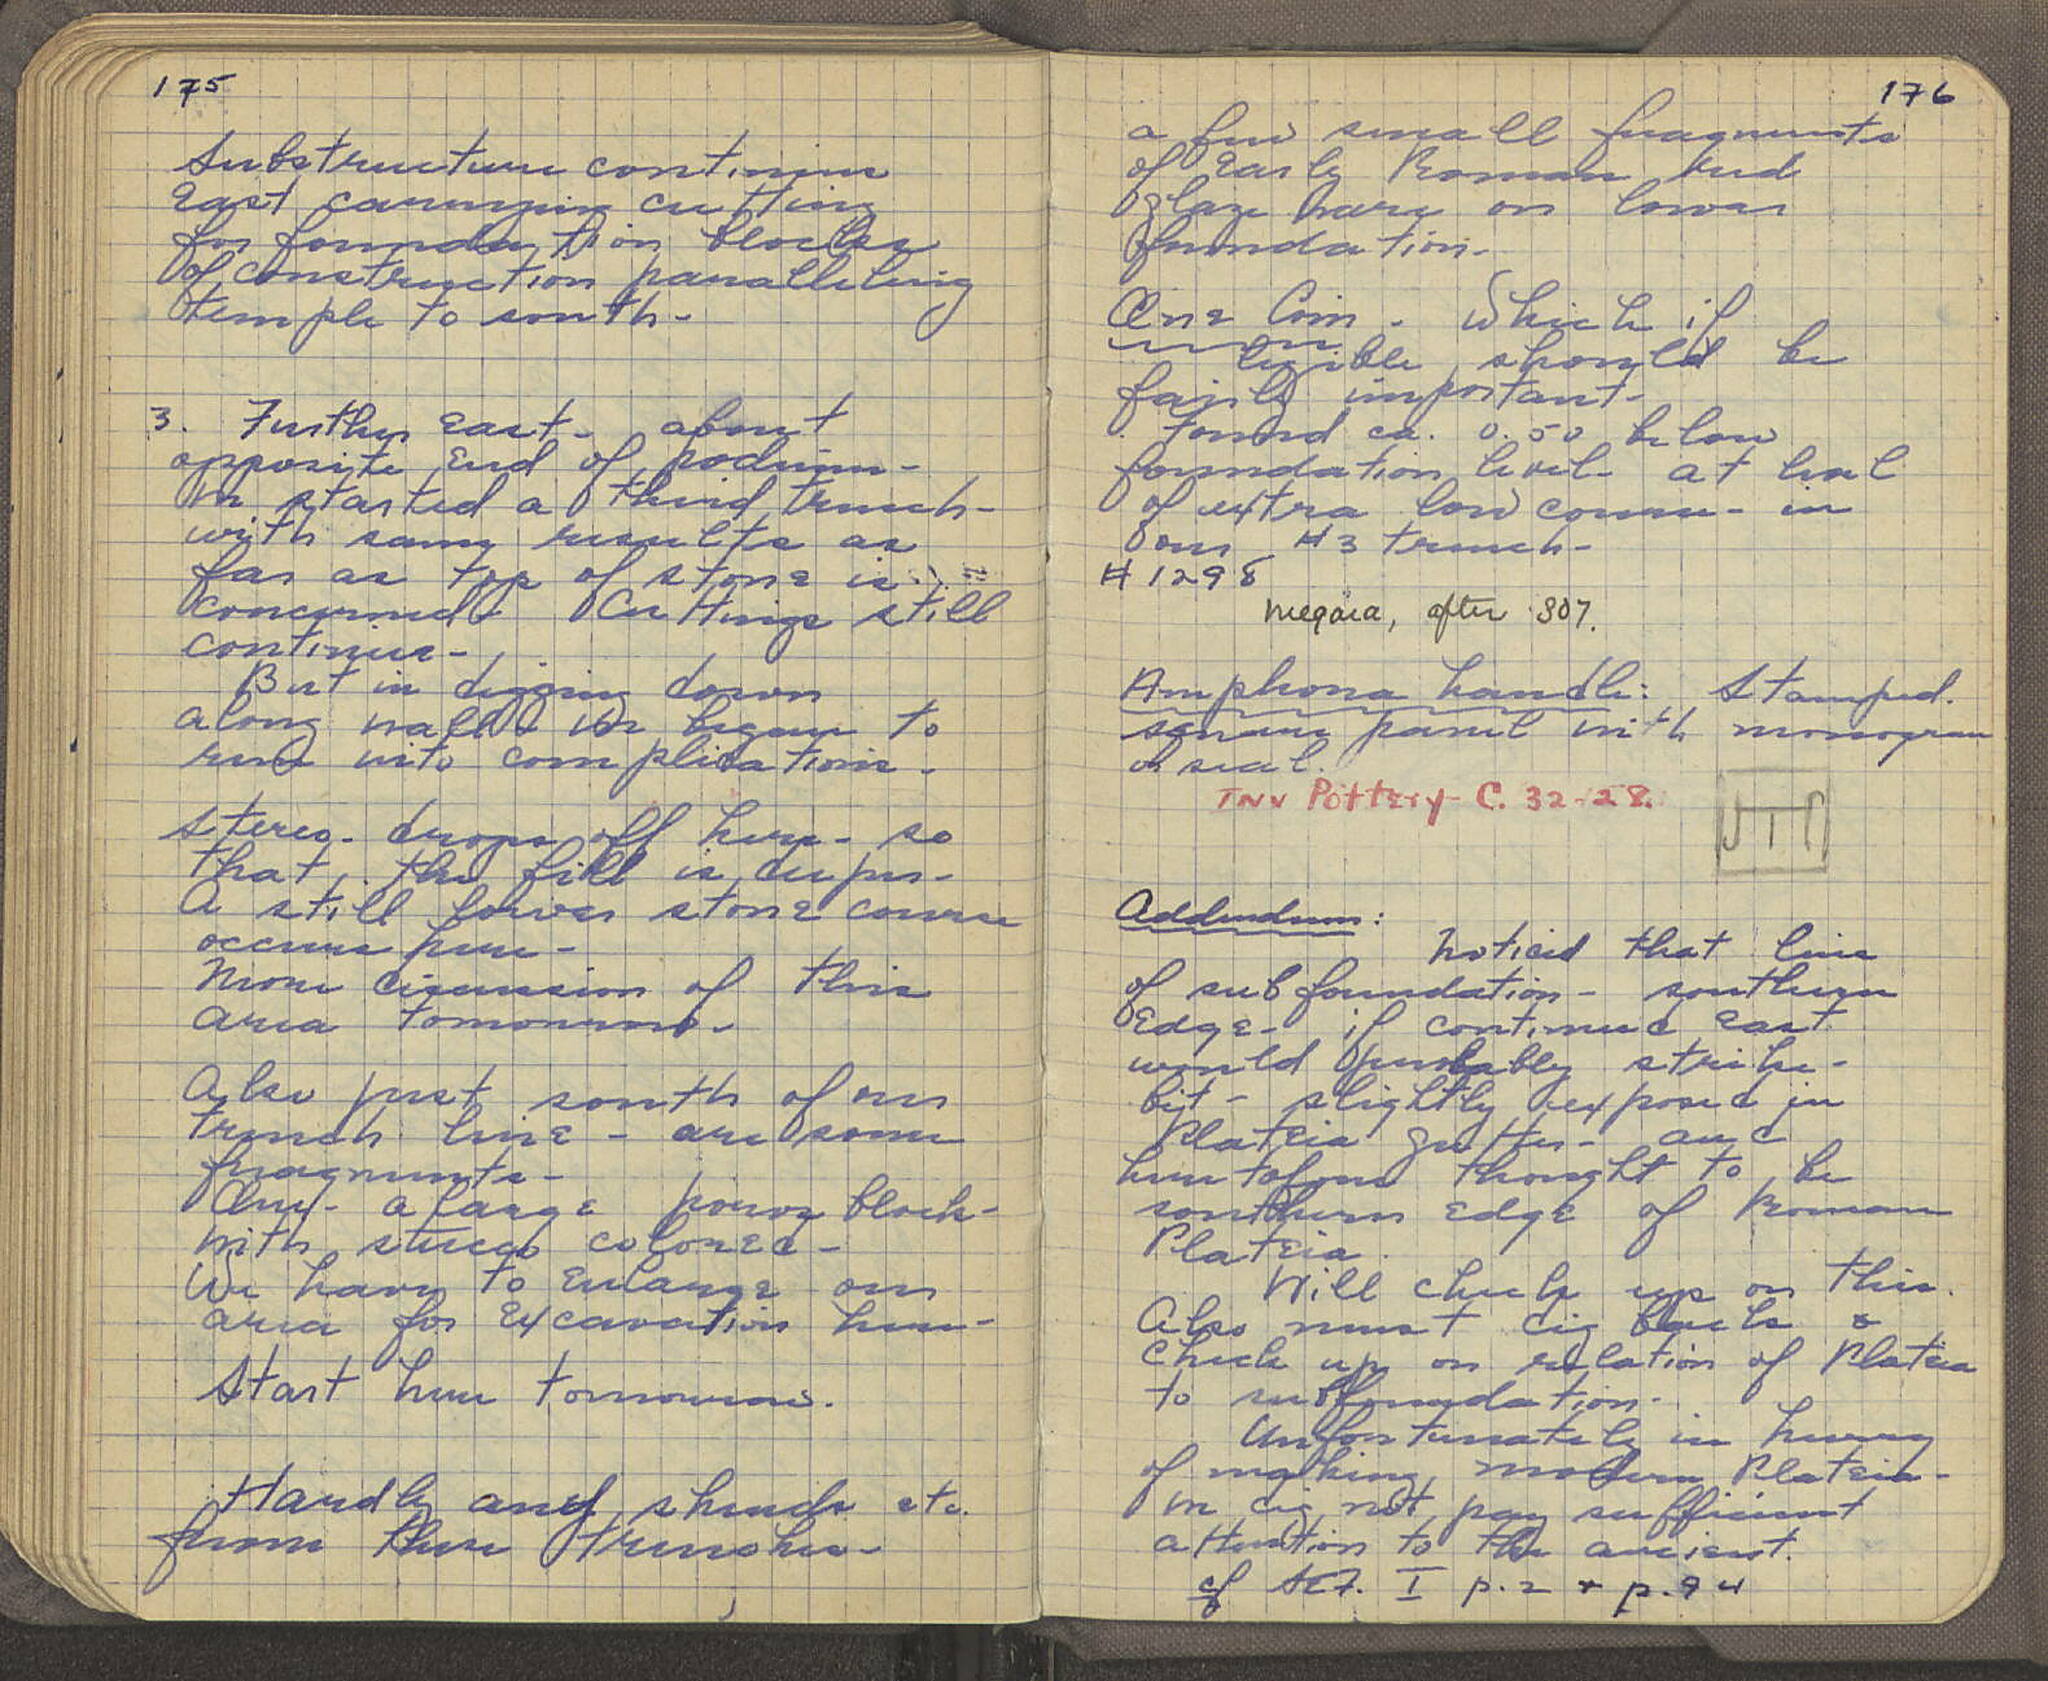 175
Substructure continues
East carrying cutting
for foundation blocks
of construction paralleling
temple to south-
3. Further East- about
opposite End of podium-
we started a third trench-
with same results as
far as top of stone is
concerned- Cuttings still
continue-
But in digging down
along wall- we began to
run into complications-
stereo- drops off here- so
that the fill is deeper-
A still lower stone course
occurs here-
More discussion of this
area tomorrow-
Also just south of our
trench line - are some
fragments-
Also- a large poros block-
with stucco colored-
We have to Enlarge our
area for Excavation here-
Start here tomorrow.
Hardly any sherds etc.
from these trenches-
176
a few small fragments
of Early Roman red
glaze ware on lower
foundation-
One Coin - Which if
legible should be
fairly important-
Found ca. 0.50 below
foundation level- at level
of extra low course- in
our #3 trench-
#1298
Megara, after 307.
Amphora handle: Stamped.
square panel with monogram
or seal.
Inv Pottery- C. 32-28.
Addendum:
Noticed that line
of subfoundation- southern
Edge- if continued East
would probably strike-
bit- slightly exposed in
Plateia gutter- and
heretofore thought to be
southern Edge of Roman
Plateia.
Will check up on this.
Also must dig back &
check up on relation of Plateia
to subfoundation-
Unfortunately in hurry
of making modern Plateia-
we did not pay sufficient
attention to the ancient.
cf I p.2 + p.94